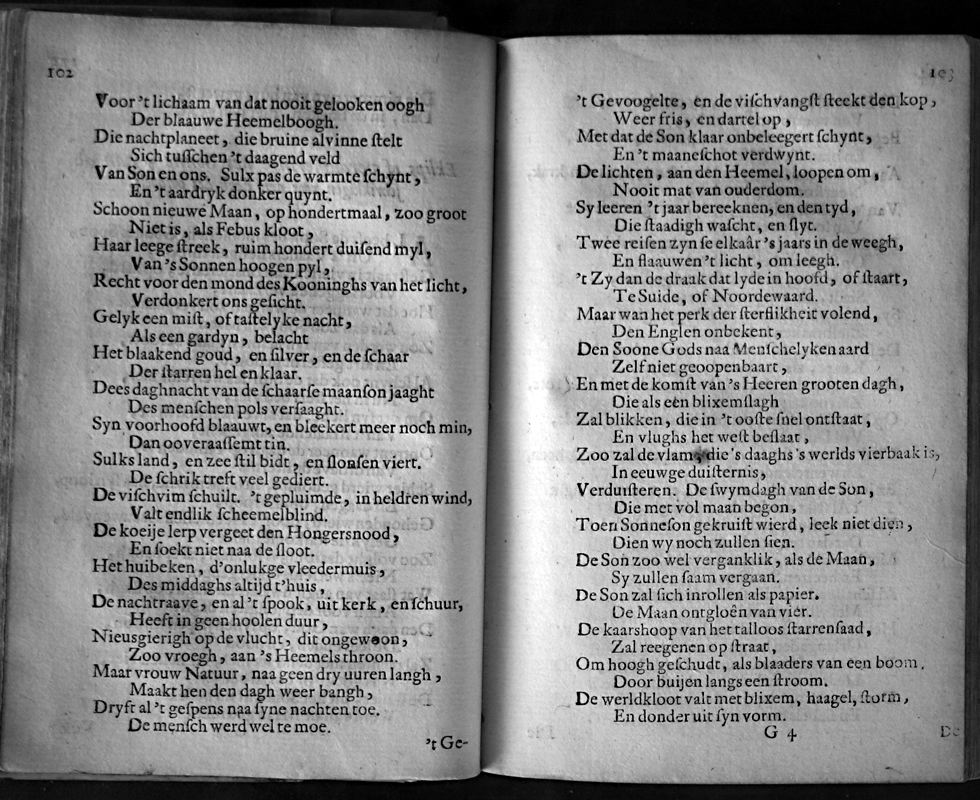 102
Voor 't lichaam van dat nooit gelooken oogh
Der blaauwe Heemelboogh.
Die nachtplaneet, die bruine alvinne ſtelt
Sich tuſſchen 't daagend veld
Van Son en ons. Sulx pas de warmte ſchynt,
En 't aardryk donker quynt.
Schoon nieuwe Maan, op hondertmaal, zoo groot
Niet is, als Febus kloot,
Haar leege ſtreek, ruim hondert duiſend myl,
Van 's Sonnen hoogen pyl,
Recht voor den mond des Kooninghs van het licht,
Verdonkert ons geſicht.
Gelyk een miſt, of taſtelyke nacht,
Als een gardyn, belacht
Het blaakend goud, en ſilver, en de ſchaar
Der ſtarren hel en klaar.
Dees daghnacht van de ſchaarſe maanſon jaaght
Des menſchen pols verſaaght.
Syn voorhoofd blaauwt, en bleekert meer noch min,
Dan ooveraaſſemt tin.
Sulks land, en zee ſtil bidt, en ſlonſen viert.
De ſchrik treft veel gediert.
De viſchvim ſchuilt. 't gepluimde, in heldren wind,
Valt endlik ſcheemelblind.
De koeije lerp vergeet den Hongersnood,
En ſoekt niet naa de ſloot.
Het huibeken, d'onlukge vleedermuis,
Des middaghs altijd t'huis,
De nachtraave, en al 't ſpook, uit kerk, en ſchuur,
Heeft in geen hoolen duur,
Nieusgierigh op de vlucht, dit ongewoon,
Zoo vroegh, aan 's Heemels throon.
Maar vrouw Natuur, naa geen dry uuren langh,
Maakt hen den dagh weer bangh,
Dryft al 't geſpens naa ſyne nachten toe.
De menſch werd wel te moe.
't Ge-
103
't Gevoogelte, en de viſchvangſt ſteekt den kop,
Weer fris, en dartel op,
Met dat de Son klaar onbeleegert ſchynt,
En 't maaneſchot verdwynt.
De lichten, aan den Heemel, loopen om,
Nooit mat van ouderdom.
Sy leeren 't jaar bereeknen, en den tyd,
Die ſtaadigh waſcht, en ſlyt.
Twee reiſen zyn ſe elkaâr 's jaars in de weegh,
En flaauwen 't licht, om leegh.
't Zy dan de draak dat lyde in hoofd, of ſtaart,
Te Suide, of Noordewaard.
Maar wan het perk der ſterflikheit volend,
Den Englen onbekent,
Den Soone Gods naa Menſchelyken aard
Zelf niet geoopenbaart,
En met de komſt van 's Heeren grooten dagh,
Die als een blixemſlagh
Zal blikken, die in 't ooſte ſnel ontſtaat,
En vlughs het weſt beſlaat,
Zoo zal de vlam, die 's daaghs 's werlds vierbaak is,
In eeuwge duiſternis,
Verduiſteren. De ſwymdagh van de Son,
Die met vol maan begon,
Toen Sonneſon gekruiſt wierd, leek niet dien,
Dien wy noch zullen ſien.
De Son zoo wel verganklik, als de Maan,
Sy zullen ſaam vergaan.
De Son zal ſich inrollen als papier.
De Maan ontgloên van vier.
De kaarshoop van het talloos ſtarrenſaad,
Zal reegenen op ſtraat,
Om hoogh geſchudt, als blaaders van een boom,
Door buijen langs een ſtroom.
De werldkloot valt met blixem, haagel, ſtorm,
En donder uit ſyn vorm.
G 4
De